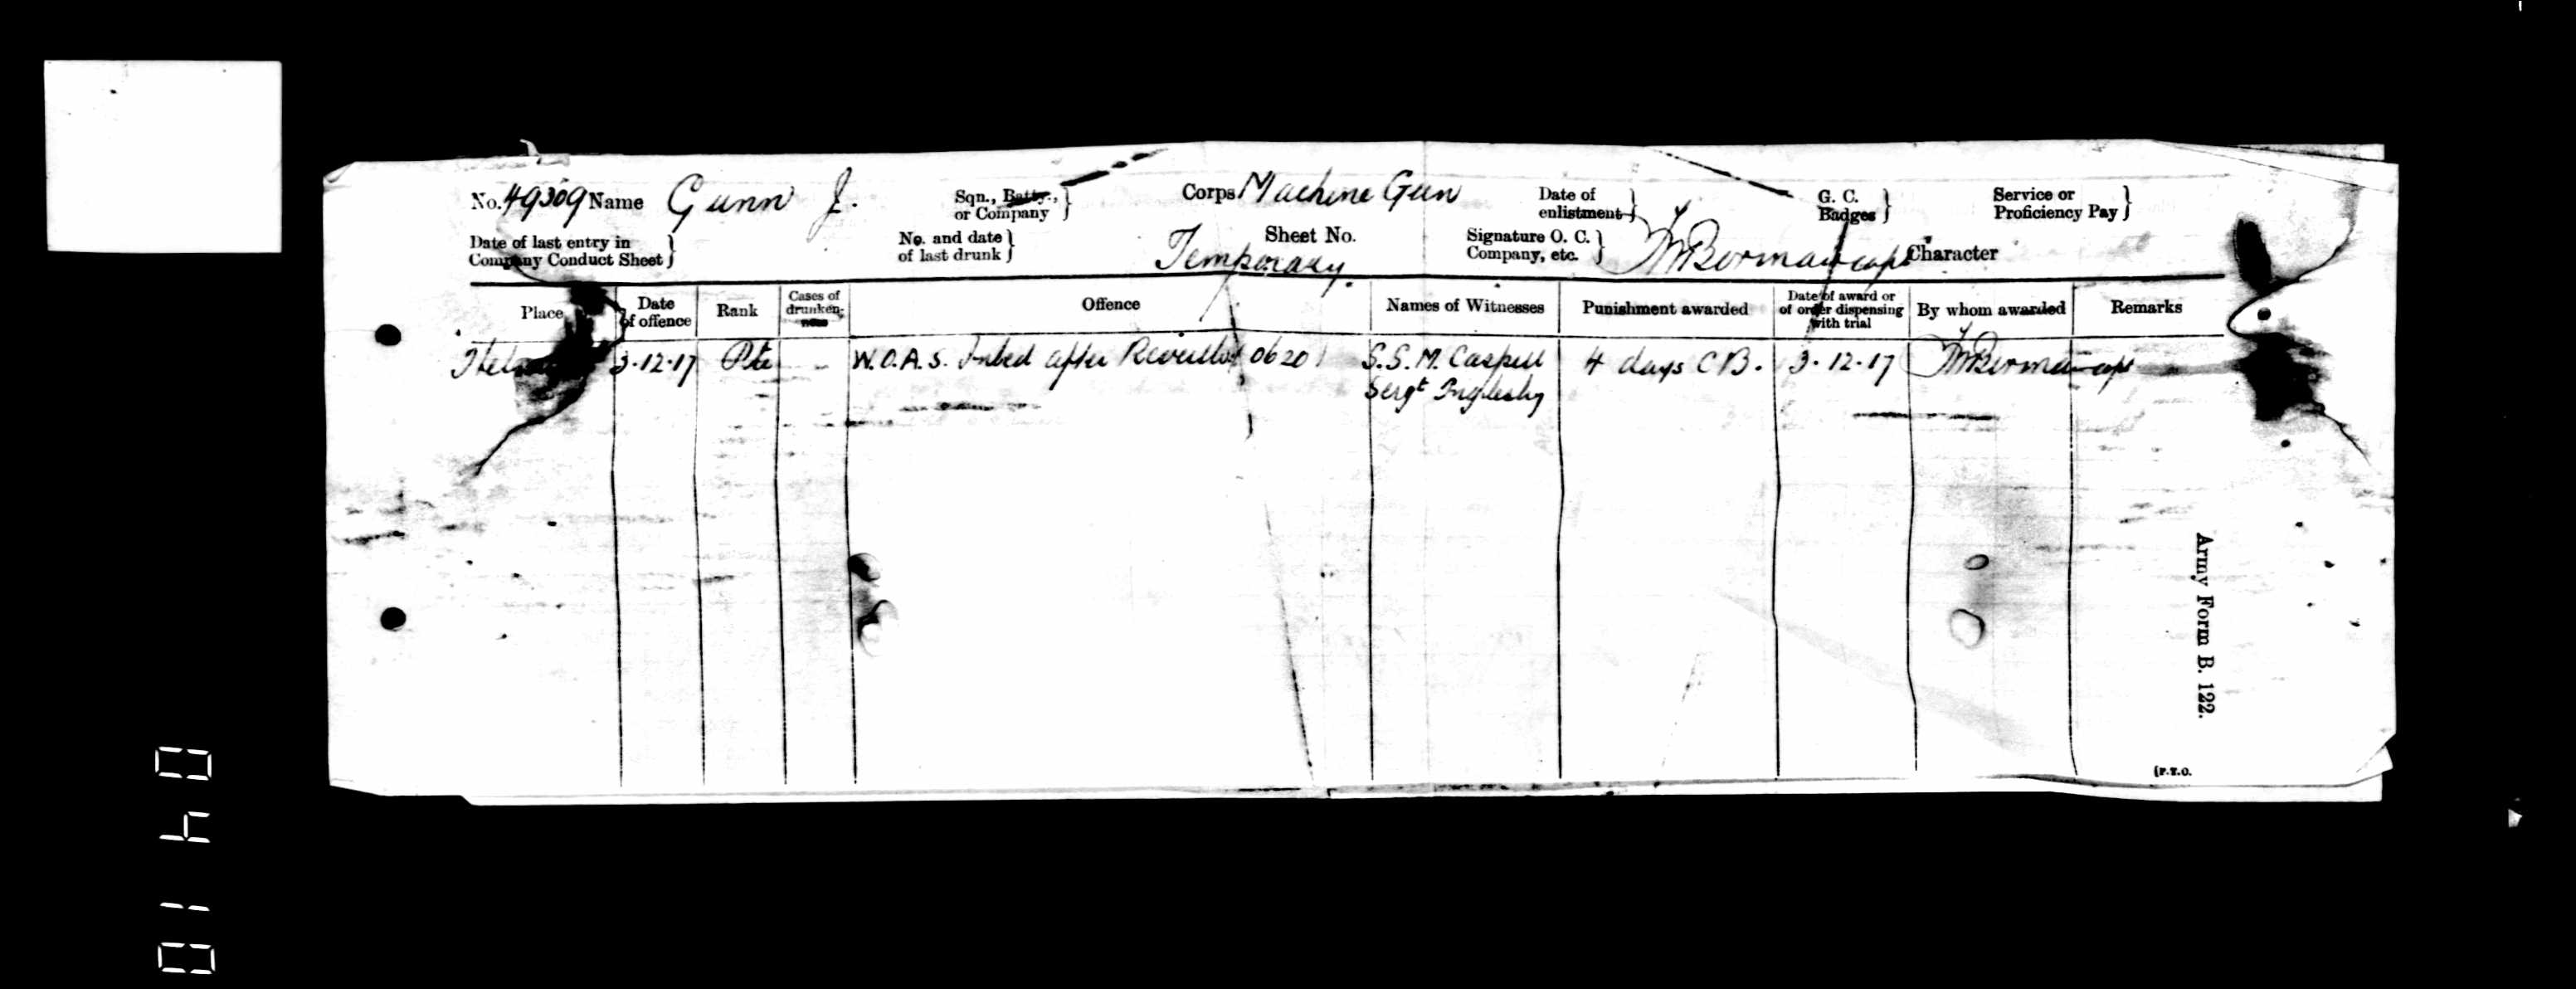 No. 49309 Name Gunn J. Sqn., Batty., Corps Machine Gun Date of G. C. Service or
or Company enlistment Badges Proficiency Pay
Date of last entry in No. and date Sheet No. Signature O. C. Character
Company Conduct Sheet of last drunk Temporary Company, etc. Borman capt
Place Date of offence Rank Cases of drunkenness Offence Names of Witnesses Punishment awarded Date of award or of order dispensing with trial By whom awarded Remarks
3.12.17 Pte W.O.A.S. Inbed after Reveille 0620 S.S.M. Caspell 4 days C B. 3.12.17 Borman capt
Sergt Inglesby
Army Form B. 122.
[P.T.O.
0140